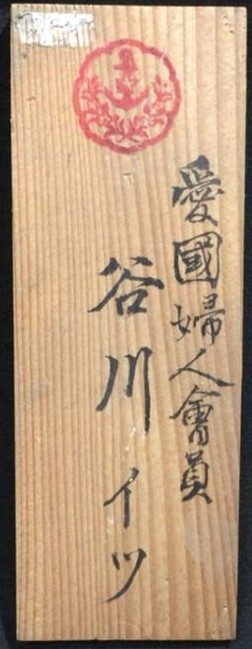 愛國婦人會員
谷川イツ